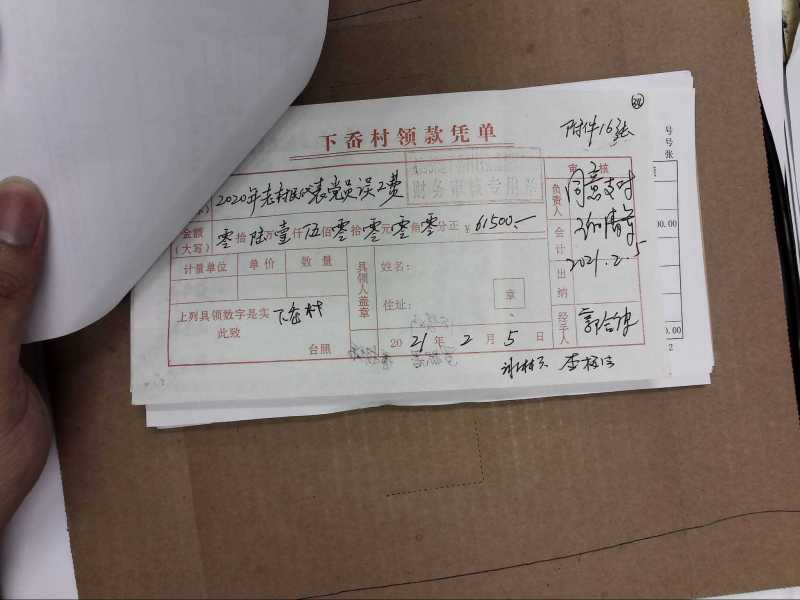 附件16张
下岙村领款凭单
财务审核专用章
审 核
2020年 村民代表党员误工费
金额
(大写) 零拾陆万壹仟伍佰零拾零元零角零分正 ¥ 61500.—
负责人 同意支付
2021.2.5
会计
出纳
计量单位 单价 数量
具领人盖章
姓名:
住址:
章
上列具领数字是实 下岙村
此致
台照
2021年2月5日
经手人
号
号
张
00.00
0.00
2